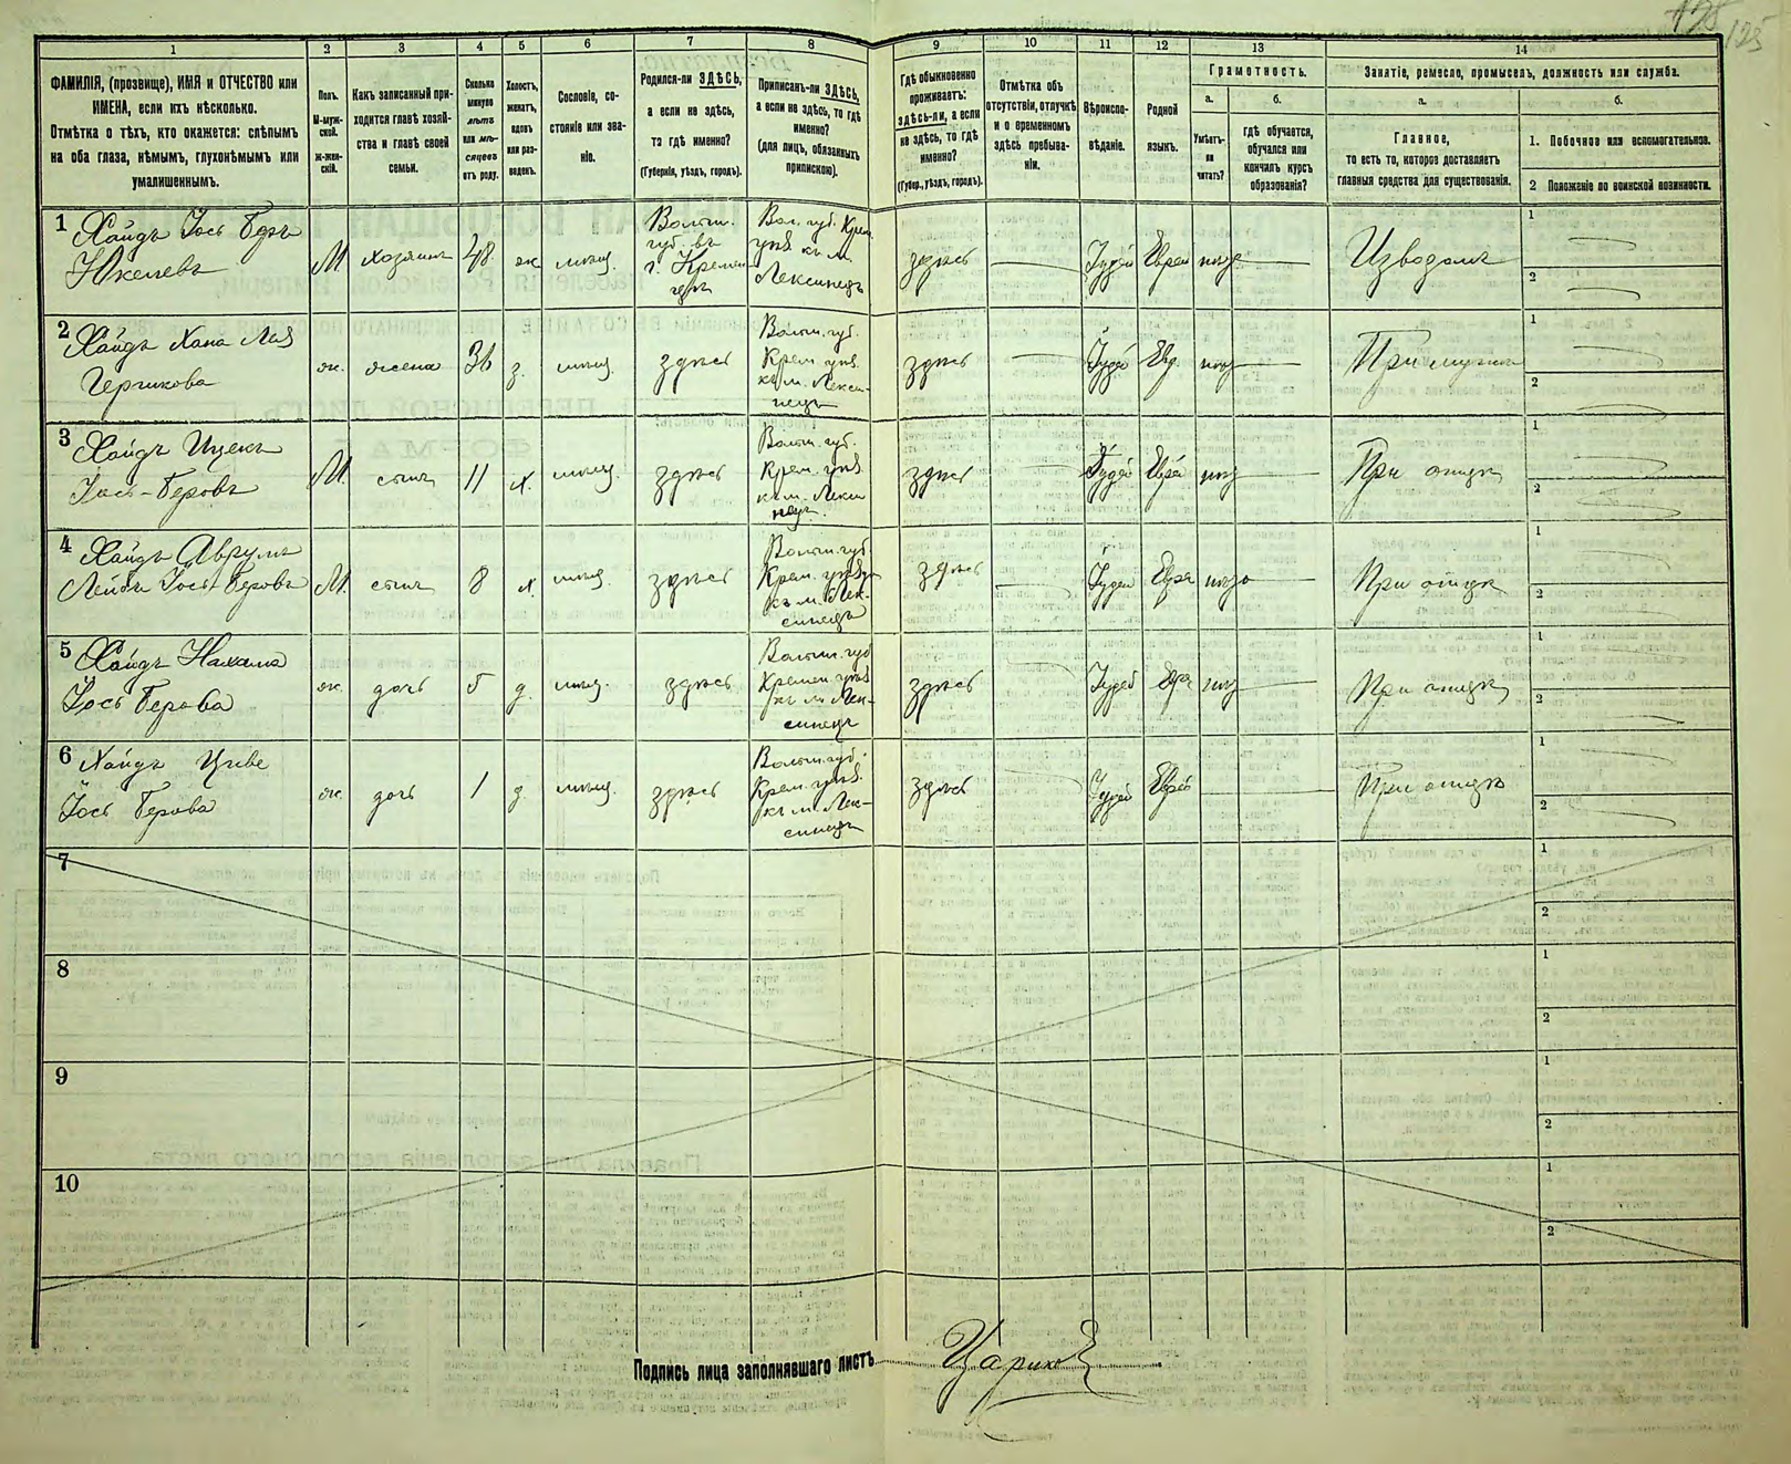 125
1
2
3
4
5
6
7
8
9
10
11
12
13
14
ФАМИЛІЯ, (прозвище), ИМЯ и ОТЧЕСТВО или
ИМЕНА, если ихъ нѣсколько.
Отмѣтка о тѣхъ, кто окажется: слѣпымъ
на оба глаза, нѣмымъ, глухонѣмымъ или
умалишеннымъ.
Полъ.
М-муж-
ской.
Ж-жен-
скій.
Какъ записанный при-
ходится главѣ хозяй-
ства и главѣ своей
семьи.
Сколько
минуло
лѣтъ
или мѣ-
сяцевъ
отъ роду.
Холостъ,
женатъ,
вдовъ
или раз-
веденъ.
Сословіе, со-
стояніе или зва-
ніе.
Родился-ли ЗДѢСЬ,
а если не здѣсь,
то гдѣ именно?
(Губернія, уѣздъ, городъ).
Приписанъ-ли ЗДѢСЬ,
а если не здѣсь, то гдѣ
именно?
(для лицъ, обязанныхъ
припискою).
Гдѣ обыкновенно
проживаетъ:
здѣсь-ли, а если
не здѣсь, то гдѣ
именно?
(Губер., уѣздъ, городъ).
Отмѣтка объ
отсутствіи, отлучкѣ
и о временномъ
здѣсь пребыва-
ніи.
Вѣроиспо-
вѣданіе.
Родной
языкъ.
Грамотность.
а.
Умѣетъ-
ли
читать?
б.
гдѣ обучается,
обучался или
кончилъ курсъ
образованія?
Занятіе, ремесло, промыселъ, должность или служба.
а.
Главное,
то есть то, которое доставляетъ
главныя средства для существованія.
б.
1. Побочное или вспомогательное.
2 Положеніе по воинской повинности.
1 Хайдъ Іось Беръ
М хозяинъ 48 ж мѣщ.
Волын.
губ. въ
г. Кремен-
Вол. губ. Крем.
уѣз. къ м.
Лексинецъ
здѣсь Іудей Еврей Извозомъ
1
2
2 Хайдъ Хана Лея
Гершкова
ж. жена 36 з. мѣщ. здѣсь
Волын. губ.
Крем. уѣз.
къ м. Лекси-
нецъ
здѣсь Іудей Евр. При мужѣ
1
2
3 Хайдъ Ицекъ
Іось-Беровъ
М. сынъ 11 х. мѣщ. здѣсь
Волын. губ.
Крем. уѣз.
къ м. Лекси
нецъ.
здѣсь Іудей Еврей При отцѣ
1
2
4 Хайдъ Аврумъ
Лейбъ Іось-Беровъ
М. сынъ 8 х. мѣщ. здѣсь
Волын. губ.
Крем. уѣз.
къ м. Лек-
синецъ
здѣсь Іудей Евре При отцѣ
1
2
5 Хайдъ Нахама
Іось Берова
ж. дочь 5 д. мѣщ. здѣсь
Волын. губ
Кремен уѣз
къ м Лек-
синецъ
здѣсь Іудей Евре При отцѣ
1
2
6 Хайдъ Цыве
Іось Берова
ж. дочь 1 д. мѣщ. здѣсь
Волын. губ.
Крем. уѣз.
къ м. Лек-
синецъ
здѣсь Іудей Еврей При отцѣ
1
2
7
1
2
8
1
2
9
1
2
10
1
2
Подпись лица заполнявшаго листъ